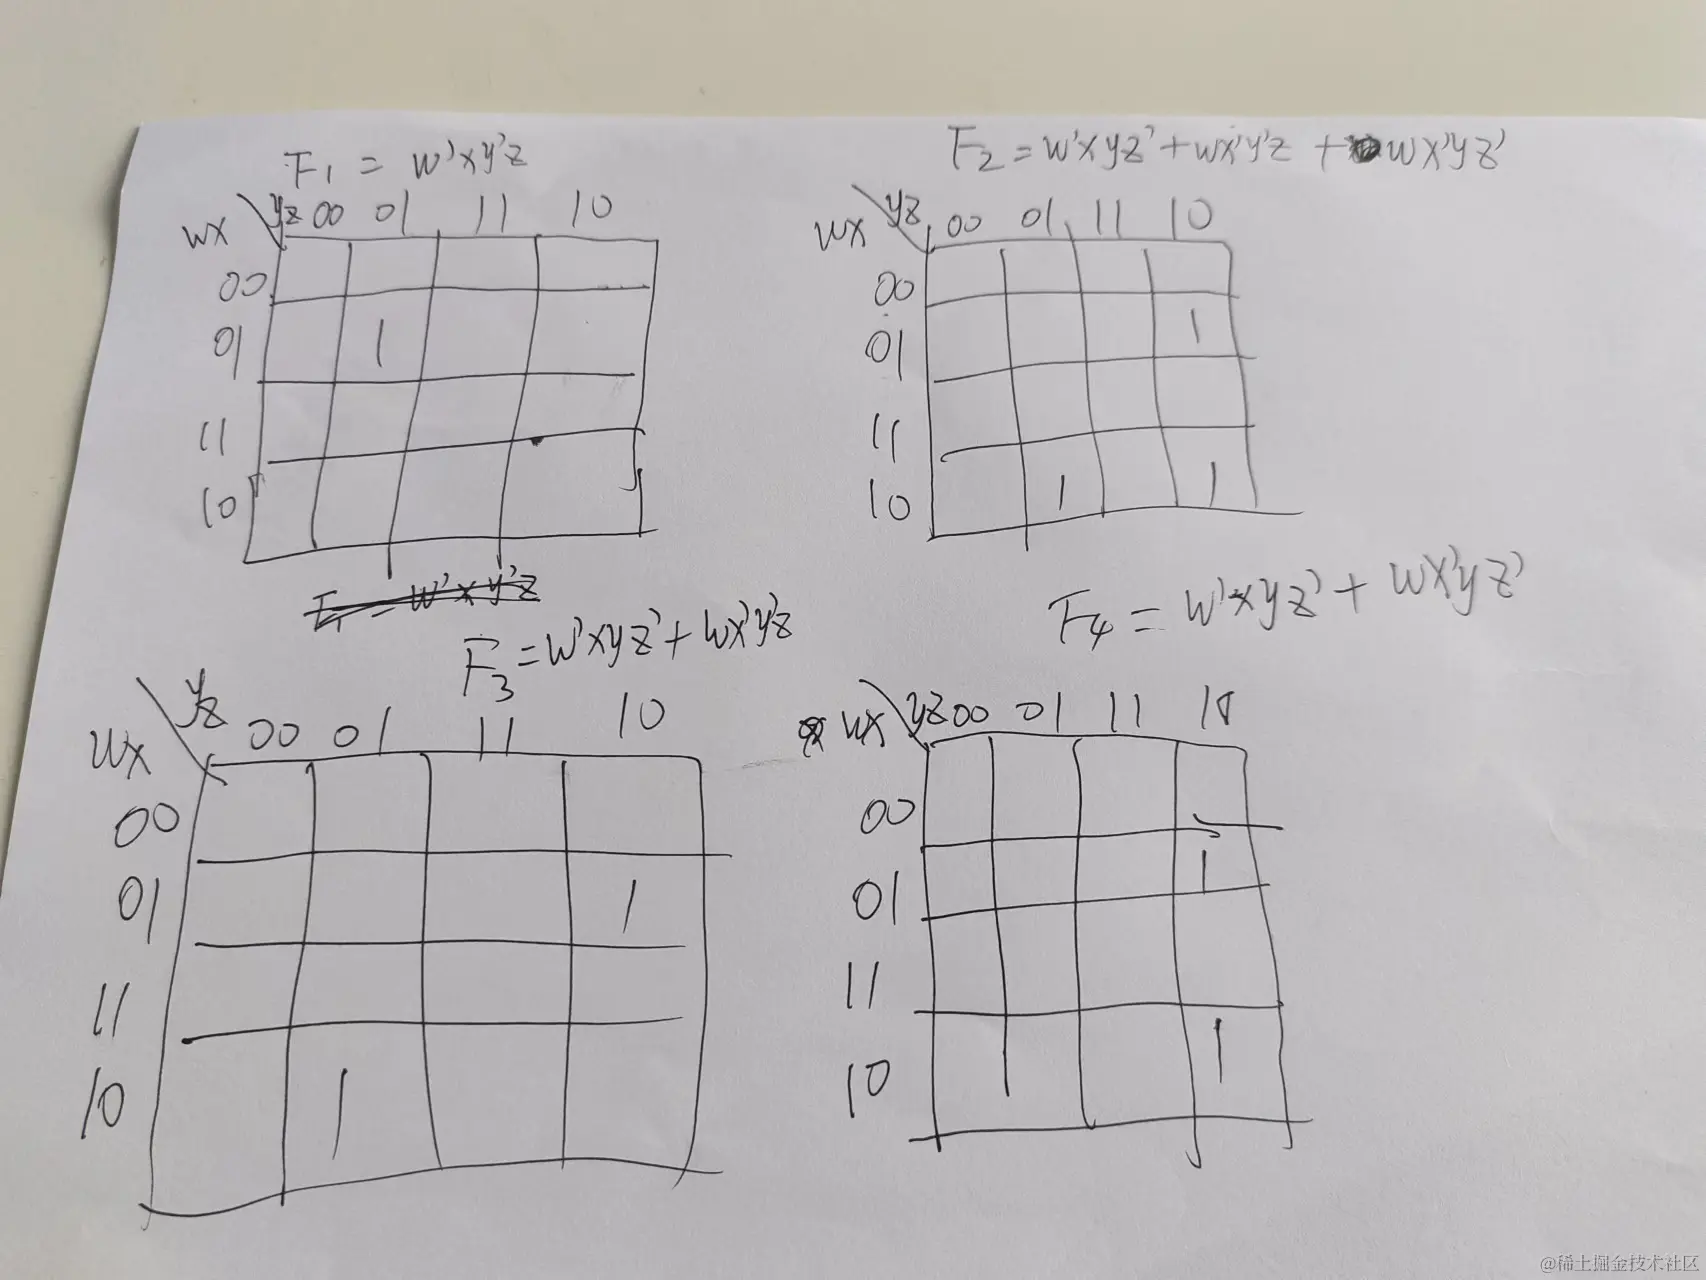 F1 = w'xy'z
wx yz 00 01 11 10
00
01 1
11
10
F2 = w'xyz' + wx'y'z + wx'yz'
wx yz 00 01 11 10
00
01 1
11
10 1 1
F1 = w'xy'z
F3 = w'xyz' + wx'y'z
wx yz 00 01 11 10
00
01 1
11
10 1
F4 = w'xyz' + wx'yz'
wx yz 00 01 11 10
00
01 1
11
10 1
@稀土掘金技术社区